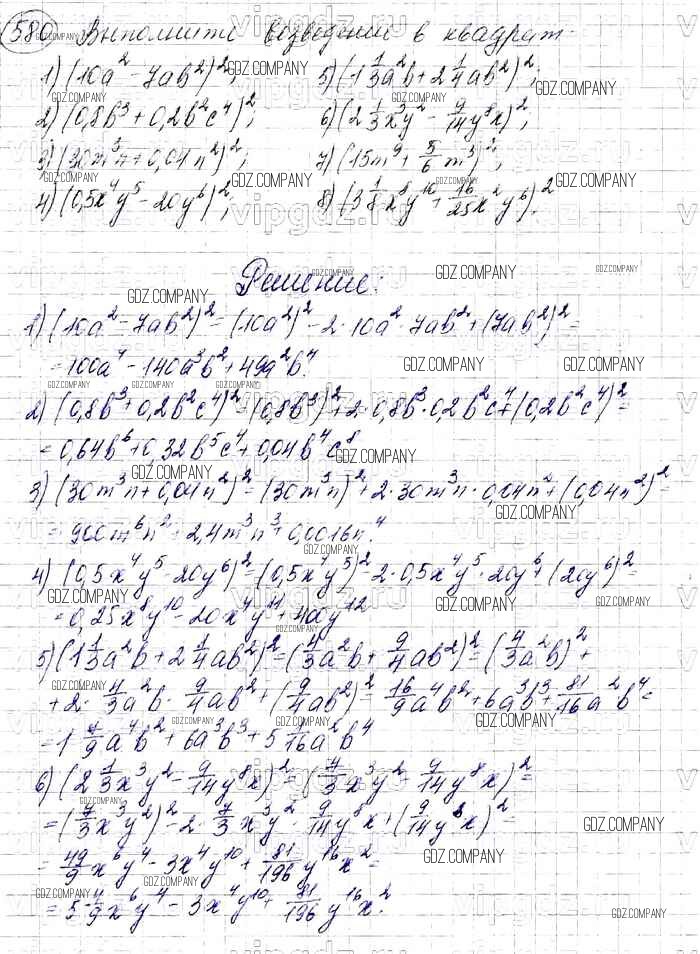 580 Выполнити возведении в квадрат.
1) (10a² - 7ab²)²; 5) (1 1/3 a²b + 2 1/4 ab²)²;
2) (0,8b³ + 0,2b²c⁴)²; 6) (2 1/3 x³y² - 9/14 y⁸x)²;
3) (30m³n + 0,04n²)²; 7) (15m⁹ + 5/6 m³)²;
4) (0,5x⁴y⁵ - 20y⁶)²; 8) (3 1/8 x⁸y¹⁶ + 16/25 x²y⁶)².
Решение:
1) (10a² - 7ab²)² = (10a²)² - 2·10a²·7ab² + (7ab²)² =
= 100a⁴ - 140a³b² + 49a²b⁴.
2) (0,8b³ + 0,2b²c⁴)² = (0,8b³)² + 2·0,8b³·0,2b²c⁴ + (0,2b²c⁴)² =
= 0,64b⁶ + 0,32b⁵c⁴ + 0,04b⁴c⁸
3) (30m³n + 0,04n²)² = (30m³n)² + 2·30m³n·0,04n² + (0,04n²)² =
= 900m⁶n² + 2,4m³n³ + 0,0016n⁴.
4) (0,5x⁴y⁵ - 20y⁶)² = (0,5x⁴y⁵)² - 2·0,5x⁴y⁵·20y⁶ + (20y⁶)² =
= 0,25x⁸y¹⁰ - 20x⁴y¹¹ + 400y¹²
5) (1 1/3 a²b + 2 1/4 ab²)² = (4/3 a²b + 9/4 ab²)² = (4/3 a²b)² +
+ 2·4/3 a²b·9/4 ab² + (9/4 ab²)² = 16/9 a⁴b² + 6a³b³ + 81/16 a²b⁴ =
= 1 7/9 a⁴b² + 6a³b³ + 5 1/16 a²b⁴
6) (2 1/3 x³y² - 9/14 y⁸x)² = (7/3 x³y² + 9/14 y⁸x)² =
= (7/3 x³y²)² - 2·7/3 x³y²·9/14 y⁸x + (9/14 y⁸x)² =
= 49/9 x⁶y⁴ - 3x⁴y¹⁰ + 81/196 y¹⁶x² =
= 5 4/9 x⁶y⁴ - 3x⁴y¹⁰ + 81/196 y¹⁶x².
GDZ.COMPANY
vipgdz.ru